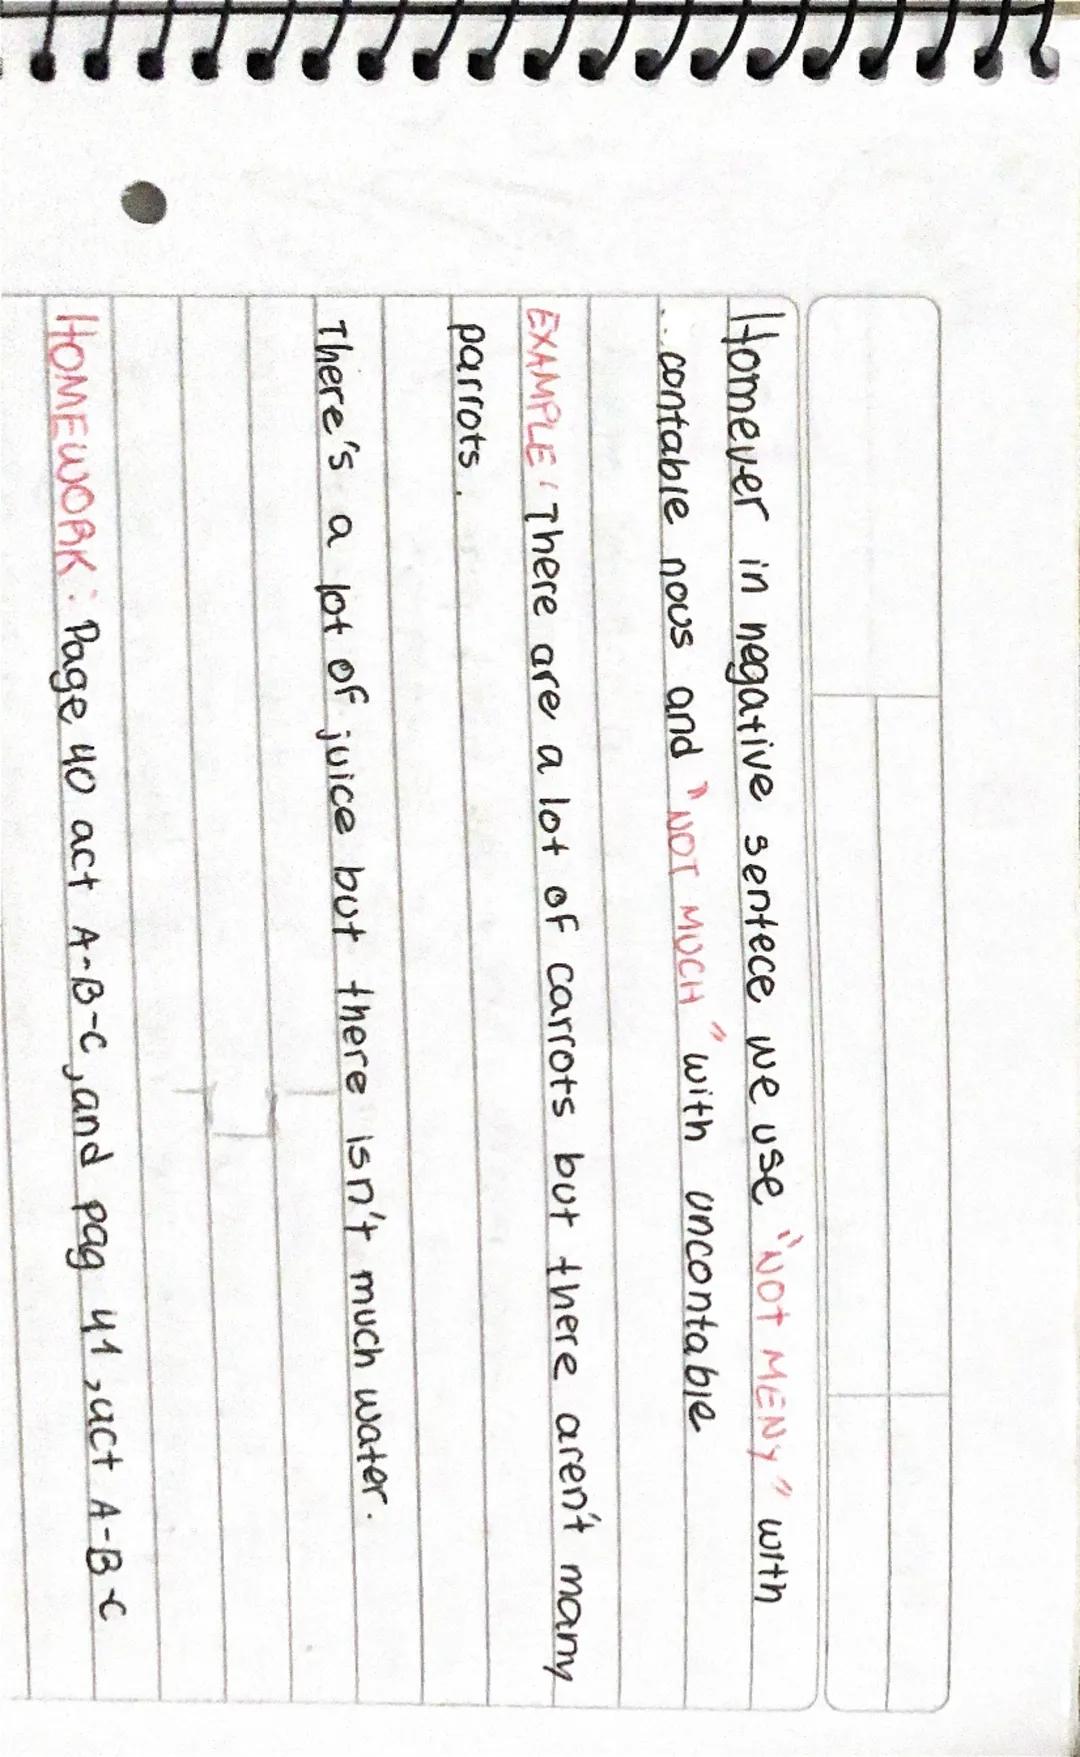 Homever in negative sentece we use "NOT MENY" with
... contable nous and "NOT MUCH" with uncontable
EXAMPLE: There are a lot of carrots but there aren't many
parrots.
There's a lot of juice but there isn't much water.
HOMEWORK: Page 40 act A-B-C, and pag 41, act A-B-C